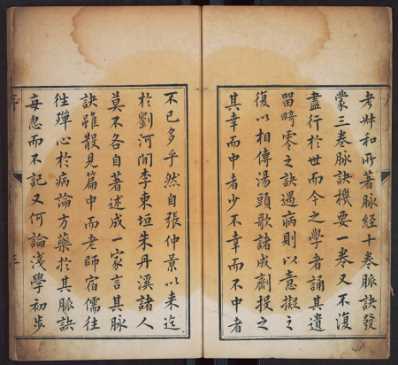 考叔和所著脉經十卷脉訣發
蒙三卷脉訣機要一卷又不復
盡行於世而今之學者誦其遺
留畸零之訣遇病則以意擬之
復以相傳湯頭歌諸成劑投之
其幸而中者少不幸而不中者
不已多乎然自張仲景以來迄
於劉河間李東垣朱丹溪諸人
莫不各自著述成一家言其脉
訣雖散見篇中而老師宿儒往
往殫心於病論方藥於其脉訣
每忽而不記又何論淺學初步